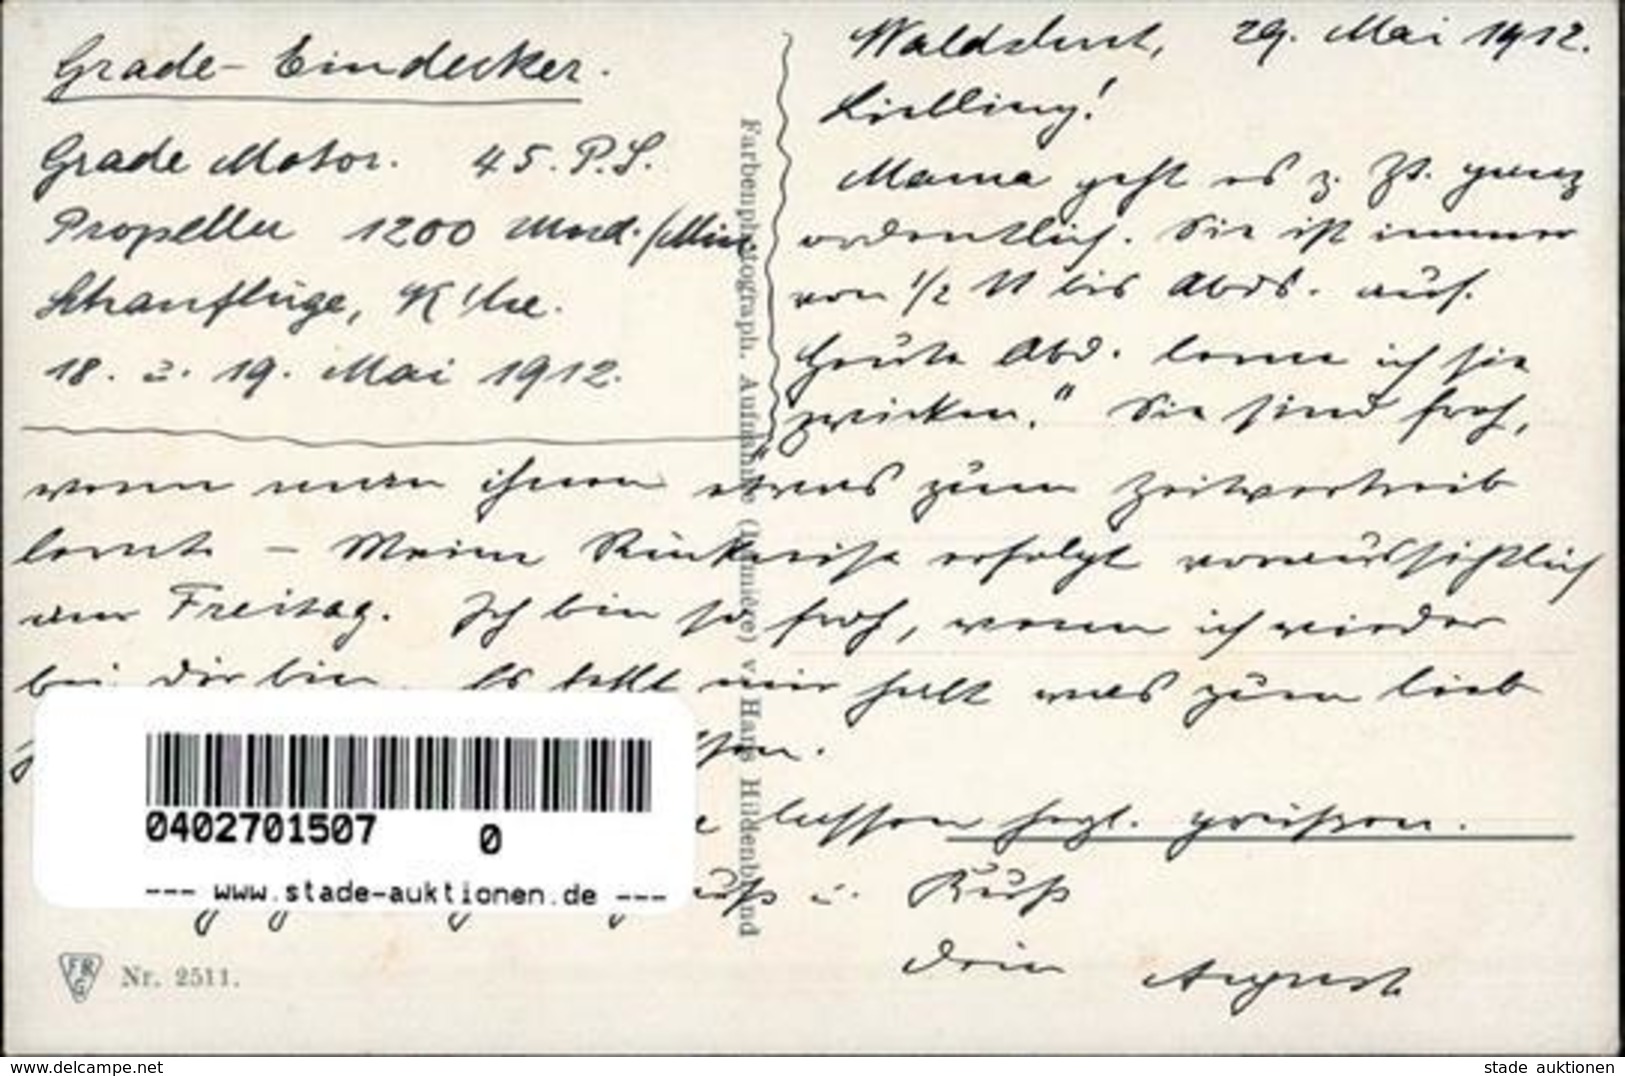 Grade-Eindecker.
Grade Motor. 45. P.S.
Propeller 1200 Umd./Min.
Schauflüge, K'lhe.
18. u. 19. Mai 1912.
Waldshut, 29. Mai 1912.
Liebling!
Mama geht es z. Zt. ganz
ordentlich. Sie ist immer
von ½ 11 bis Abds. auf.
Heute Abd. lerne ich sie
"zwicken." Sie sind froh,
wenn man ihnen etwas zum Zeitvertreib
lernt. - Meine Rückreise erfolgt voraussichtlich
am Freitag. Ich bin so froh, wenn ich wieder
bei Dir bin. Es fehlt mir halt was zum lieb
lassen herzl. grüßen.
u. Kuß
Dein August
Farbenphotograph. Aufnahme (Lumière) v. Hans Hildenbrand
0402701507 0
--- www.stade-auktionen.de ---
FRG Nr. 2511.
www.delcampe.net
stade auktionen